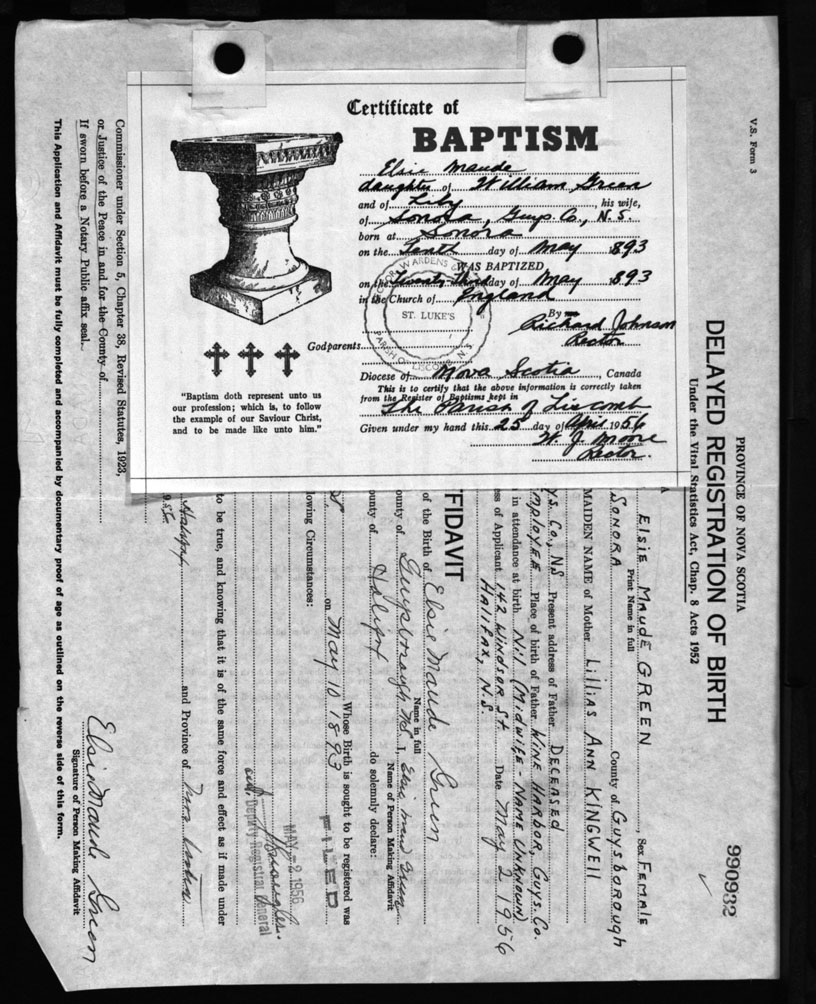 Certificate of
BAPTISM
Elsie Maude
daughter of William Green
and of Lily, his wife,
of Sonora, Guys. Co., N.S.
born at Sonora
on the Tenth day of May 1893
WAS BAPTIZED
on the Twenty Third day of May 1893
in the Church of England
By
Richard Johnson
Rector
Godparents
Diocese of Nova Scotia, Canada
This is to certify that the above information is correctly taken
from the Register of Baptisms kept in
The Parish of Liscomb
Given under my hand this 25 day of April 1956
W. J. Moore
Rector.
WARDENS
ST. LUKE'S
PARISH OF LISCOMB N.S.
"Baptism doth represent unto us
our profession; which is, to follow
the example of our Saviour Christ,
and to be made like unto him."
V.S. Form 3
990932
PROVINCE OF NOVA SCOTIA
DELAYED REGISTRATION OF BIRTH
Under the Vital Statistics Act, Chap. 8 Acts 1952
ELSIE MAUDE GREEN, Sex FEMALE
Print Name in full
SONORA County of GUYSBOROUGH
MAIDEN NAME of Mother LILLIAS ANN KINGWELL
YS. CO., NS Present address of Father DECEASED
MPLOYEE Place of birth of Father WINE HARBOR, GUYS. CO.
in attendance at birth NIL (MIDWIFE - NAME UNKNOWN)
ess of Applicant 142 WINDSOR ST Date MAY 2 1956
HALIFAX, N.S.
FFIDAVIT
of the Birth of Elsie Maude Green
Name in full
ounty of Guysborough NS I, Elsie Maud Green
Name of Person Making Affidavit
ounty of Halifax do solemnly declare:
Whose Birth is sought to be registered was
on May 10 1893
FILED
lowing Circumstances:
MAY - 2 1956
Deputy Registrar General
to be true, and knowing that it is of the same force and effect as if made under
Halifax and Province of Nova Scotia
Elsie Maude Green
Signature of Person Making Affidavit
Commissioner under Section 5, Chapter 38, Revised Statutes, 1923,
or Justice of the Peace in and for the County of
If sworn before a Notary Public affix seal.
This Application and Affidavit must be fully completed and accompanied by documentary proof of age as outlined on the reverse side of this form.